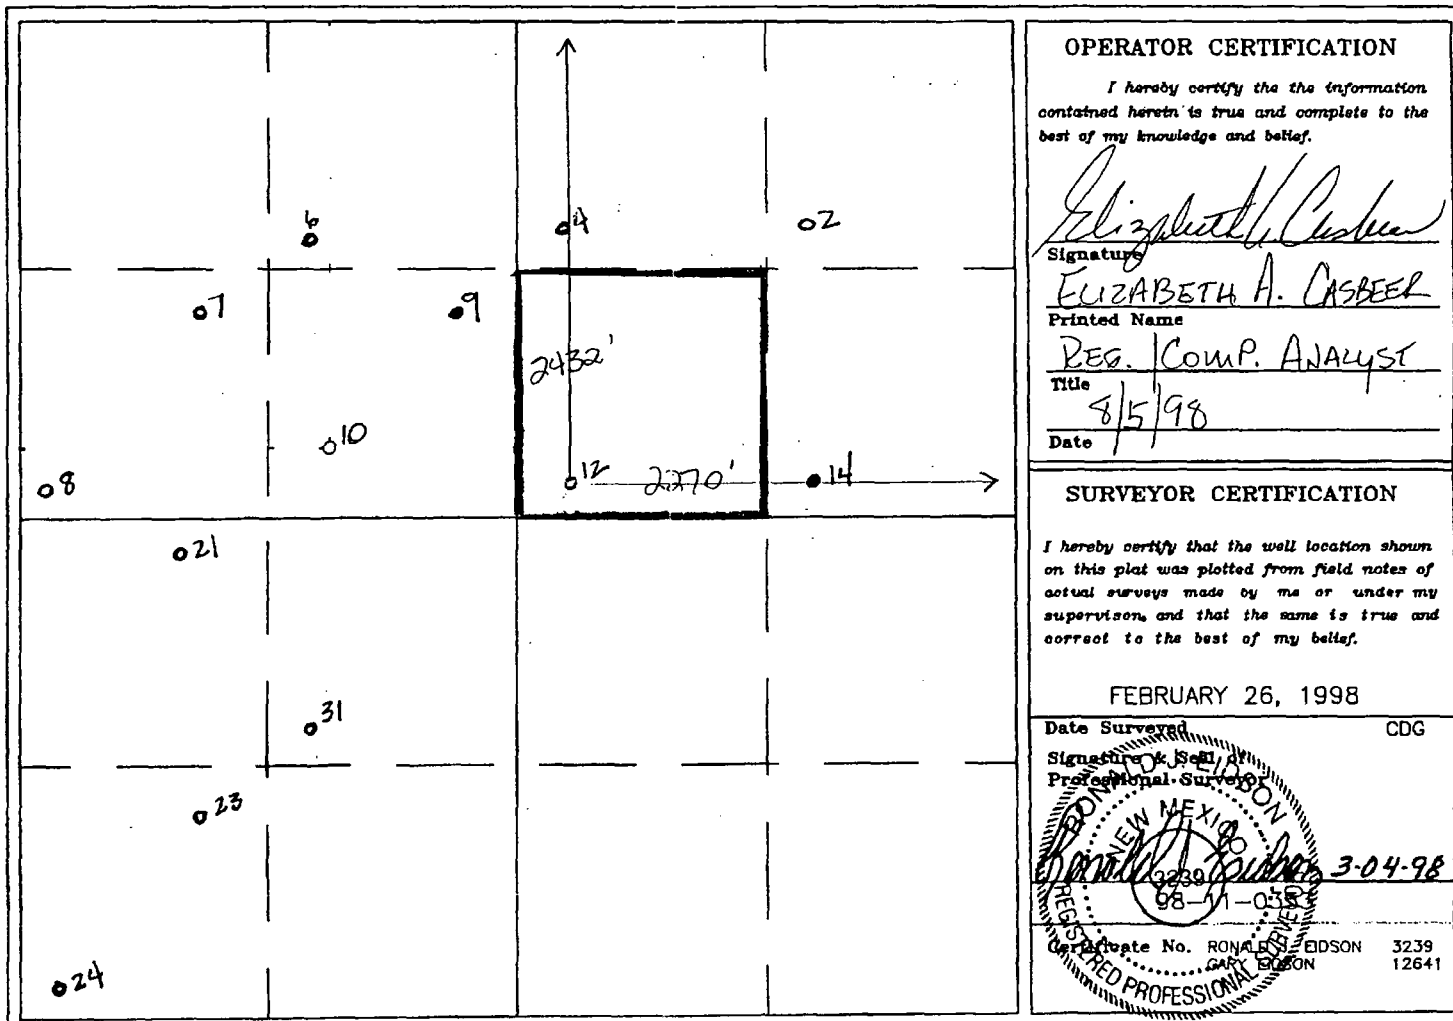 6
4
2
7
9
2432'
10
8
12
2270'
14
21
31
23
24
OPERATOR CERTIFICATION
I hereby certify the the information
contained herein is true and complete to the
best of my knowledge and belief.
Signature
ELIZABETH A. CASBEER
Printed Name
REG. COMP. ANALYST
Title
8/5/98
Date
SURVEYOR CERTIFICATION
I hereby certify that the well location shown
on this plat was plotted from field notes of
actual surveys made by me or under my
supervison, and that the same is true and
correct to the best of my belief.
FEBRUARY 26, 1998
Date Surveyed CDG
Signature & Seal of
Professional Surveyor
RONALD J. EIDSON
NEW MEXICO
3239
REGISTERED PROFESSIONAL SURVEYOR
3-04-98
98-11-0353
Certificate No. RONALD J. EIDSON 3239
GARY EIDSON 12641